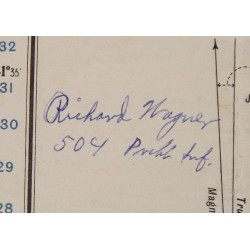 32
1°35'
31
Richard Wagner
30
504 Prcht Inf.
29
28
Magn
Tru